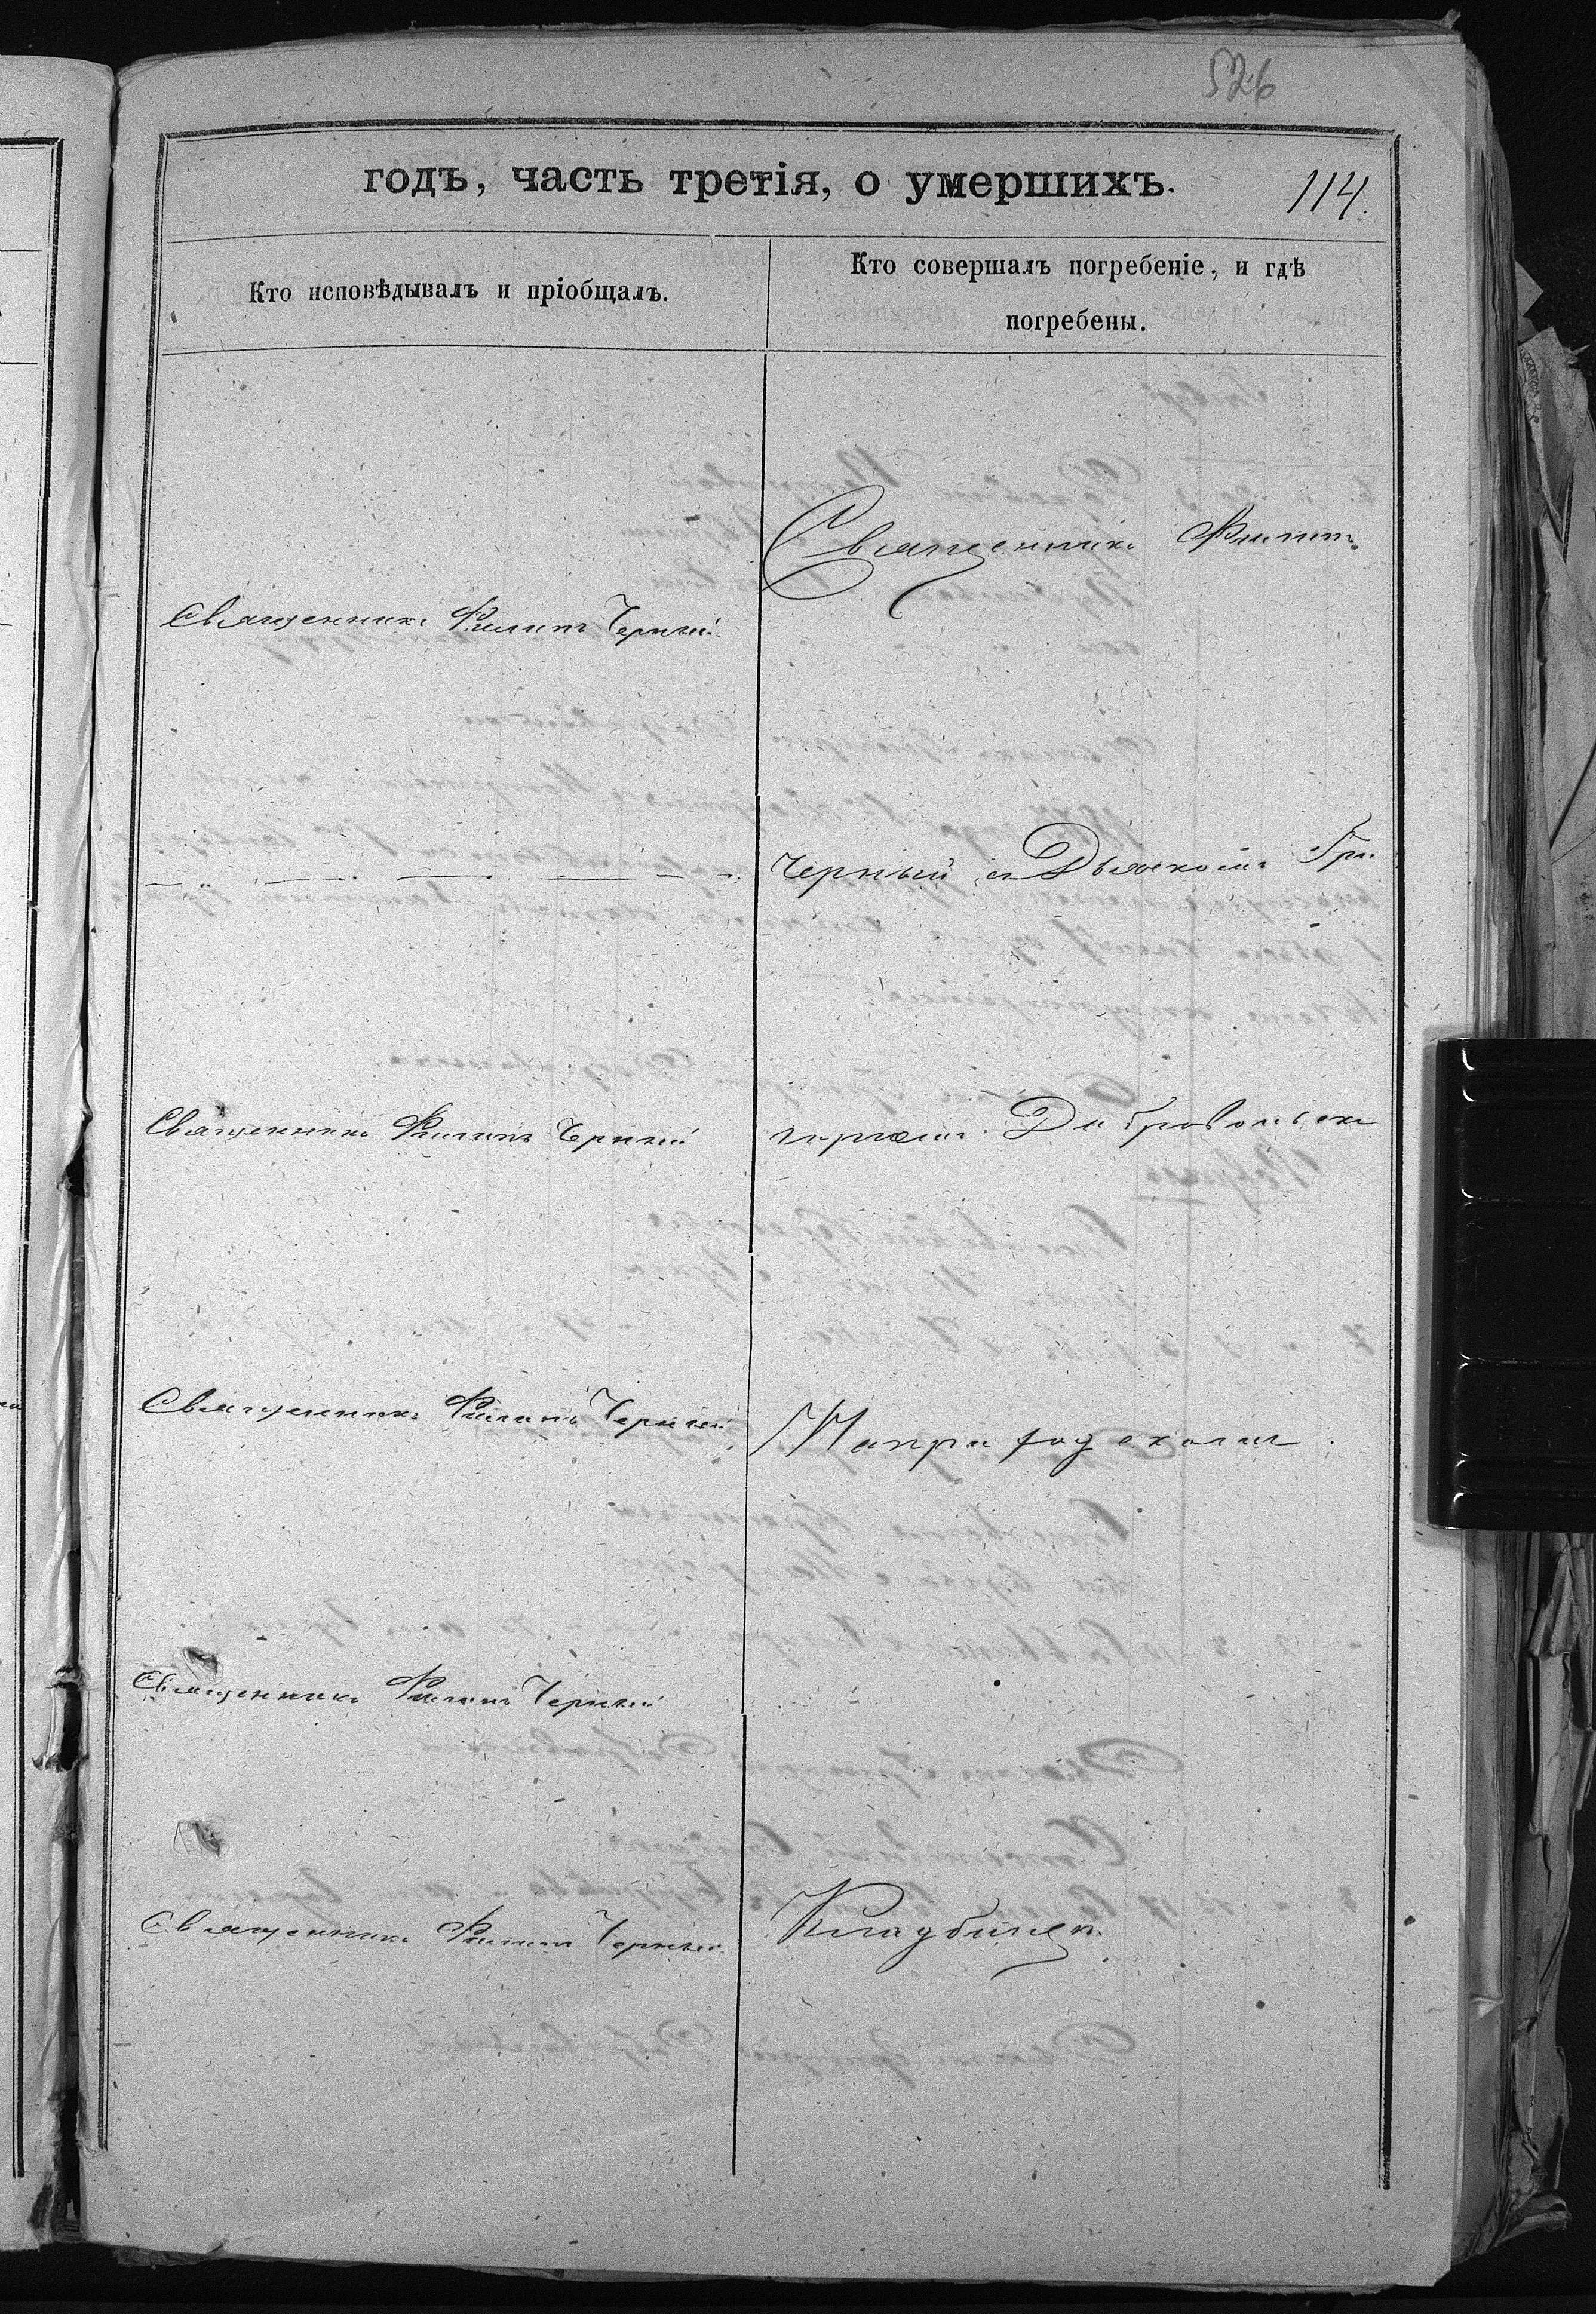 526
годъ, часть третія, о умершихъ.
114.
Кто исповѣдывалъ и пріобщалъ.
Кто совершалъ погребеніе, и гдѣ
погребены.
Священникъ Филипъ
Священникъ Филипъ Черный
Черный съ Дьякомъ Гри
Священникъ Филипъ Черный
горіемъ Добровольск
Священникъ Филипъ Черный
На приходскомъ
Священникъ Филипъ Черный
Священникъ Филипъ Черный
Кладбищѣ.